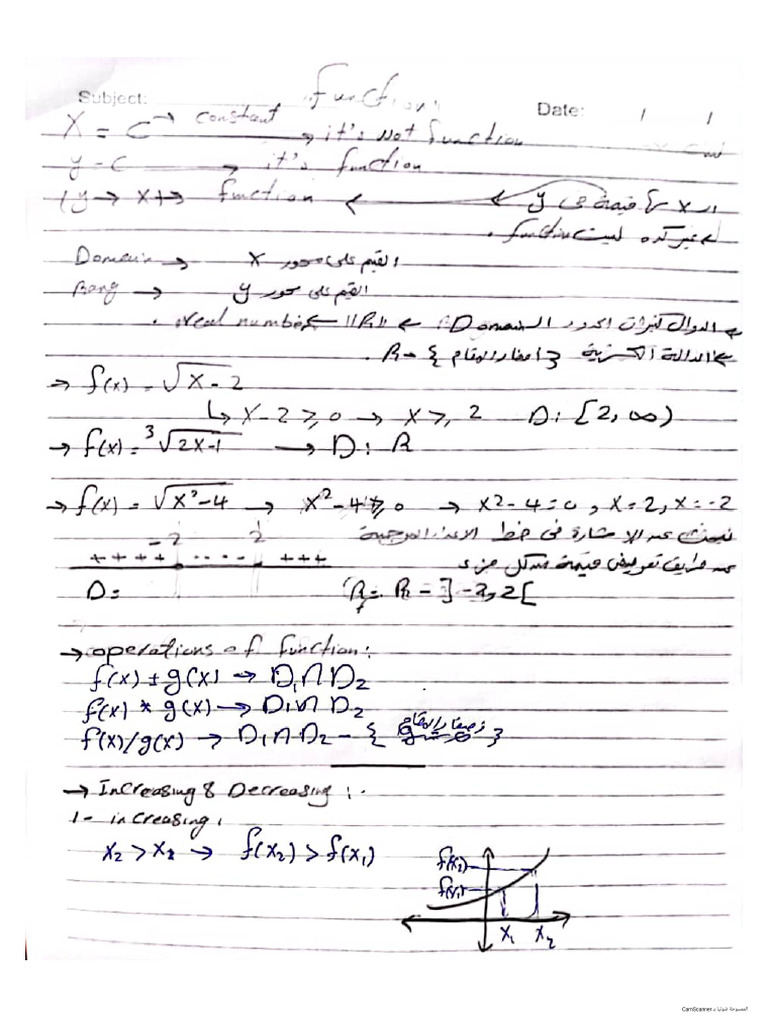 Subject: Function: Date: / /
X = C → constant → it's not function
y = C → it's function
y → x → function ← الـ x لها قيمة في y
غير كده ليست function.
Domain → القيم على محور X
Rang → القيم على محور y
← الدوال كثيرات الحدود الـ Domain ← "R" ← real number.
← الدالة الكسرية R - { اصفار المقام }.
→ f(x) = √x-2
↳ x-2 ≥ 0 → x ≥ 2 D: [2, ∞)
→ f(x) = ³√2x-1 → D: R
→ f(x) = √x²-4 → x²-4 ≥ 0 → x²-4=0, x=2, x=-2
نبحث عن الاشارة في خط الاعداد
-2 2
++++ ---- +++ عن طريق تعويض قيمة من كل جزء
D = R = R - ]-2, 2[
→ operations of function:
f(x) ± g(x) → D₁∩D₂
f(x) * g(x) → D₁∩D₂
f(x)/g(x) → D₁∩D₂ - { اصفار المقام }
→ Increasing & Decreasing:
1- increasing:
x₂ > x₁ → f(x₂) > f(x₁)
f(x₂)
f(x₁)
x₁ x₂
الممسوحة ضوئيا بـ CamScanner